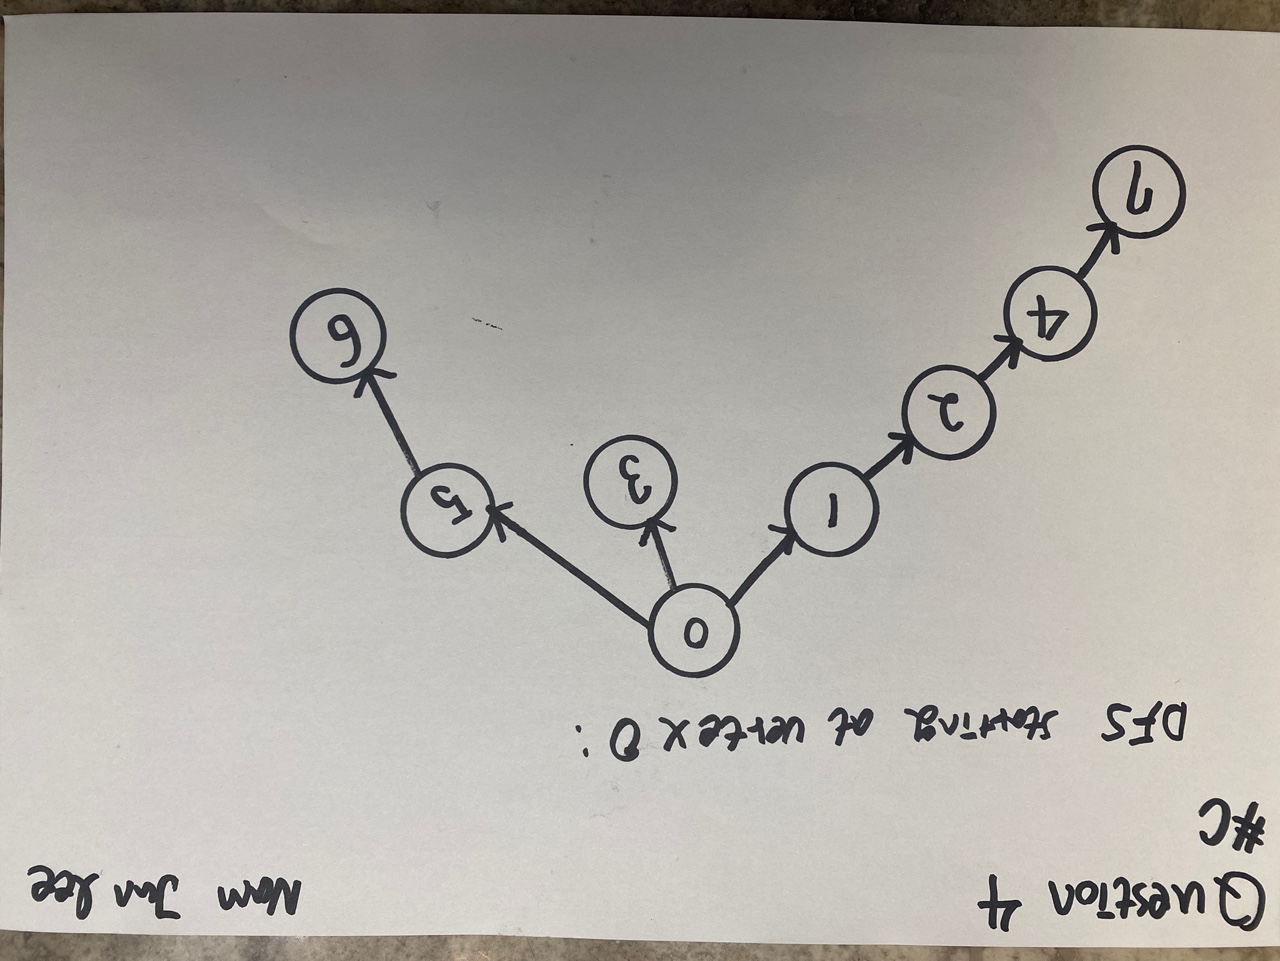 Question 4
Nam Jun lee
#C
DFS starting at vertex 0:
0
1
3
5
2
4
6
7